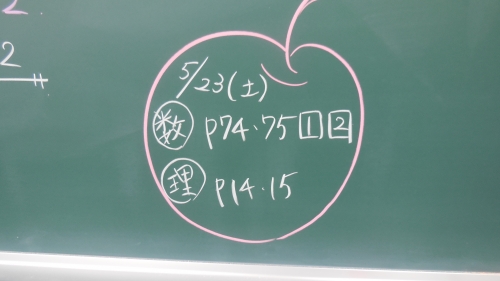 2.
2
5/23(土)
数 p74・75 1 2
理 p14・15